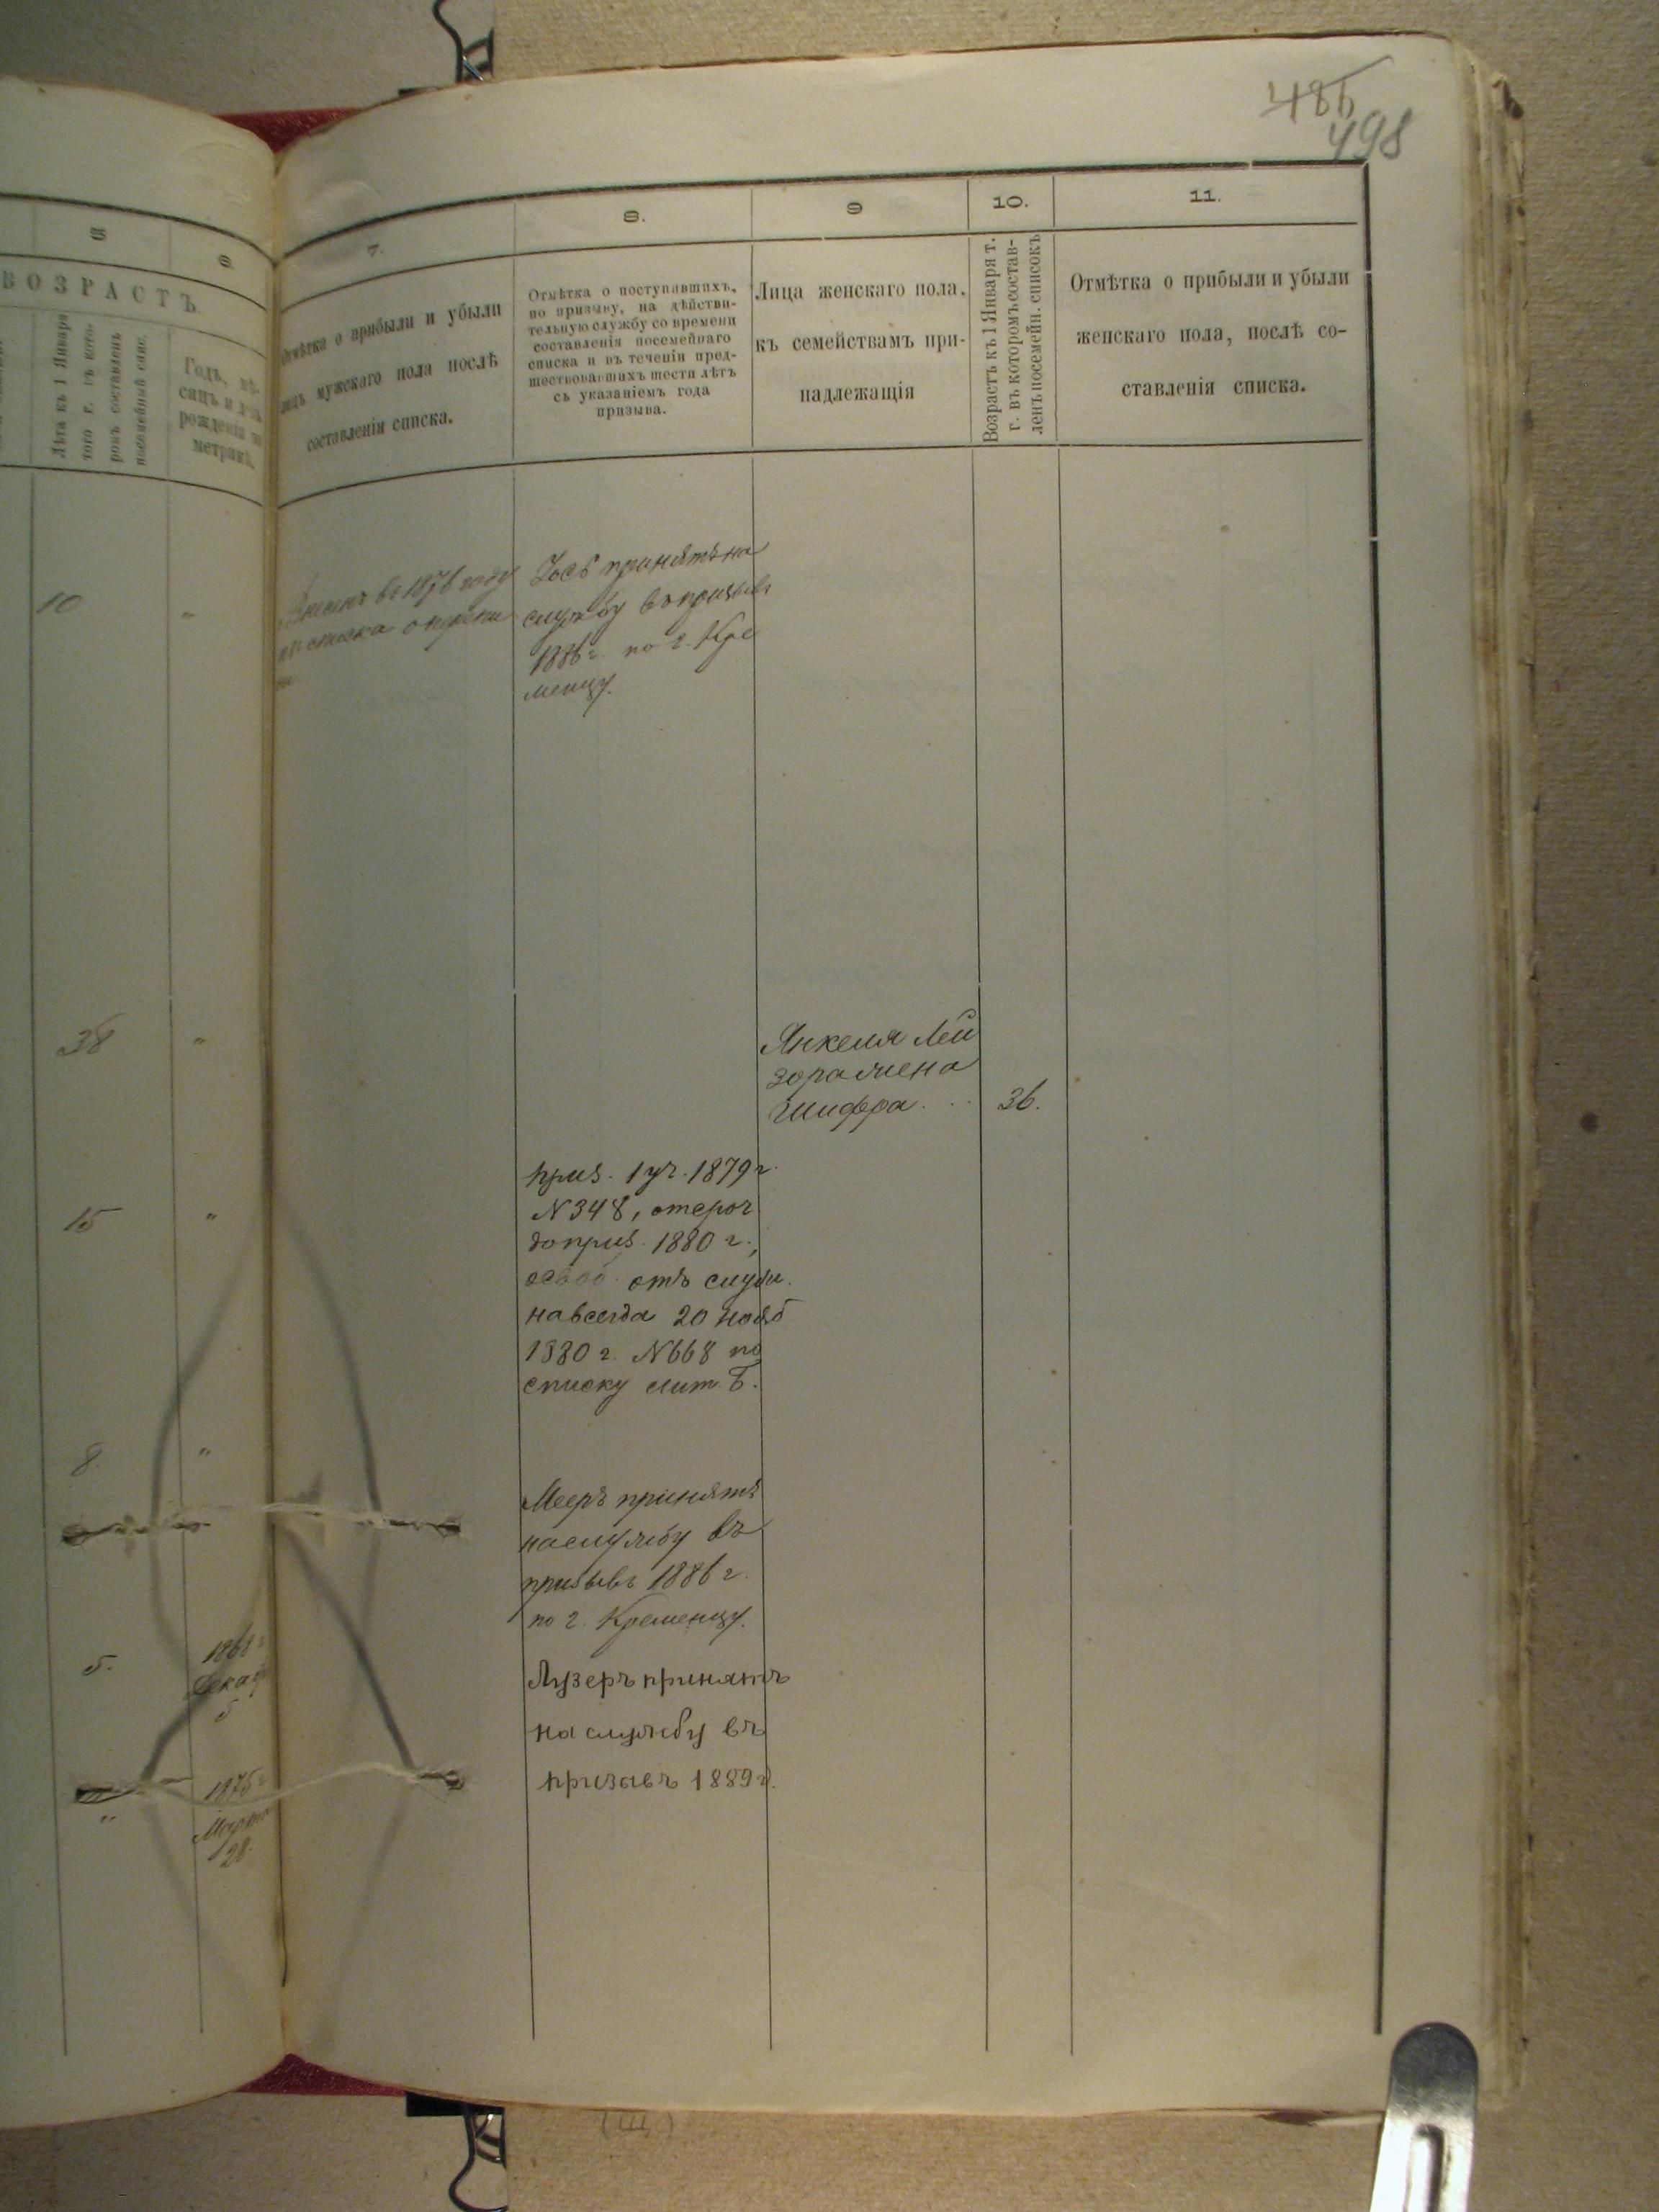 486
498
5
6.
7.
8.
9
10.
11.
ВОЗРАСТЪ
Лѣта къ 1 Января
того г. въ кото-
ромъ составленъ
посемейный спис.
Годъ, мѣ-
сяцъ и день
рожденія по
метрикѣ.
Отмѣтка о прибыли и убыли
лицъ мужскаго пола послѣ
составленія списка.
Отмѣтка о поступившихъ,
по призыву, на дѣйстви-
тельную службу со времени
составленія посемейнаго
списка и въ теченіи пред-
шествовавшихъ шести лѣтъ
съ указаніемъ года
призыва.
Лица женскаго пола,
къ семействамъ при-
надлежащія
Возрастъ къ 1 Января т.
г. въ которомъ состав-
ленъ посемейн. списокъ
Отмѣтка о прибыли и убыли
женскаго пола, послѣ со-
ставленія списка.
10 "
въ 1876 году
Іосъ принятъ на
службу въ призывъ
1886 г. по г. Кре
менцу.
38 "
Янкеля Лей
зора жена
Шифра . . . 36.
15 "
приз. 1 уч. 1879 г.
N 348, отсроч
до приз. 1880 г.,
освоб. отъ служ.
навсегда 20 нояб
1880 г. N 668 по
списку лит. Б.
8. "
Мееръ принятъ
на службу въ
призывъ 1886 г.
по г. Кременцу.
5.
1868 г
Декаб
5
Лузеръ принятъ
на службу въ
призывъ 1889 г.
"
1875 г
Марта
28.